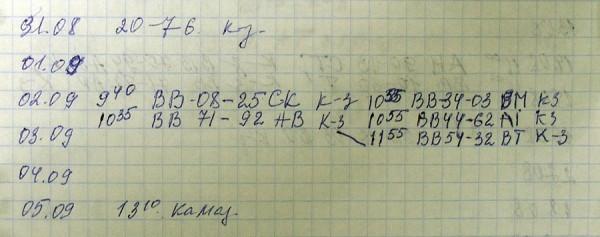 31.08 20-76 кз.
01.09
02.09 9⁴⁰ ВВ-08-25 СК К-З 10⁵⁵ ВВ-34-03 ВМ КЗ
10³⁵ ВВ 71-92 АВ К-З 10⁵⁵ ВВ44-62 АІ КЗ
03.09 11⁵⁵ ВВ54-32 ВТ К-З
04.09
05.09 13¹⁰ Камаз.